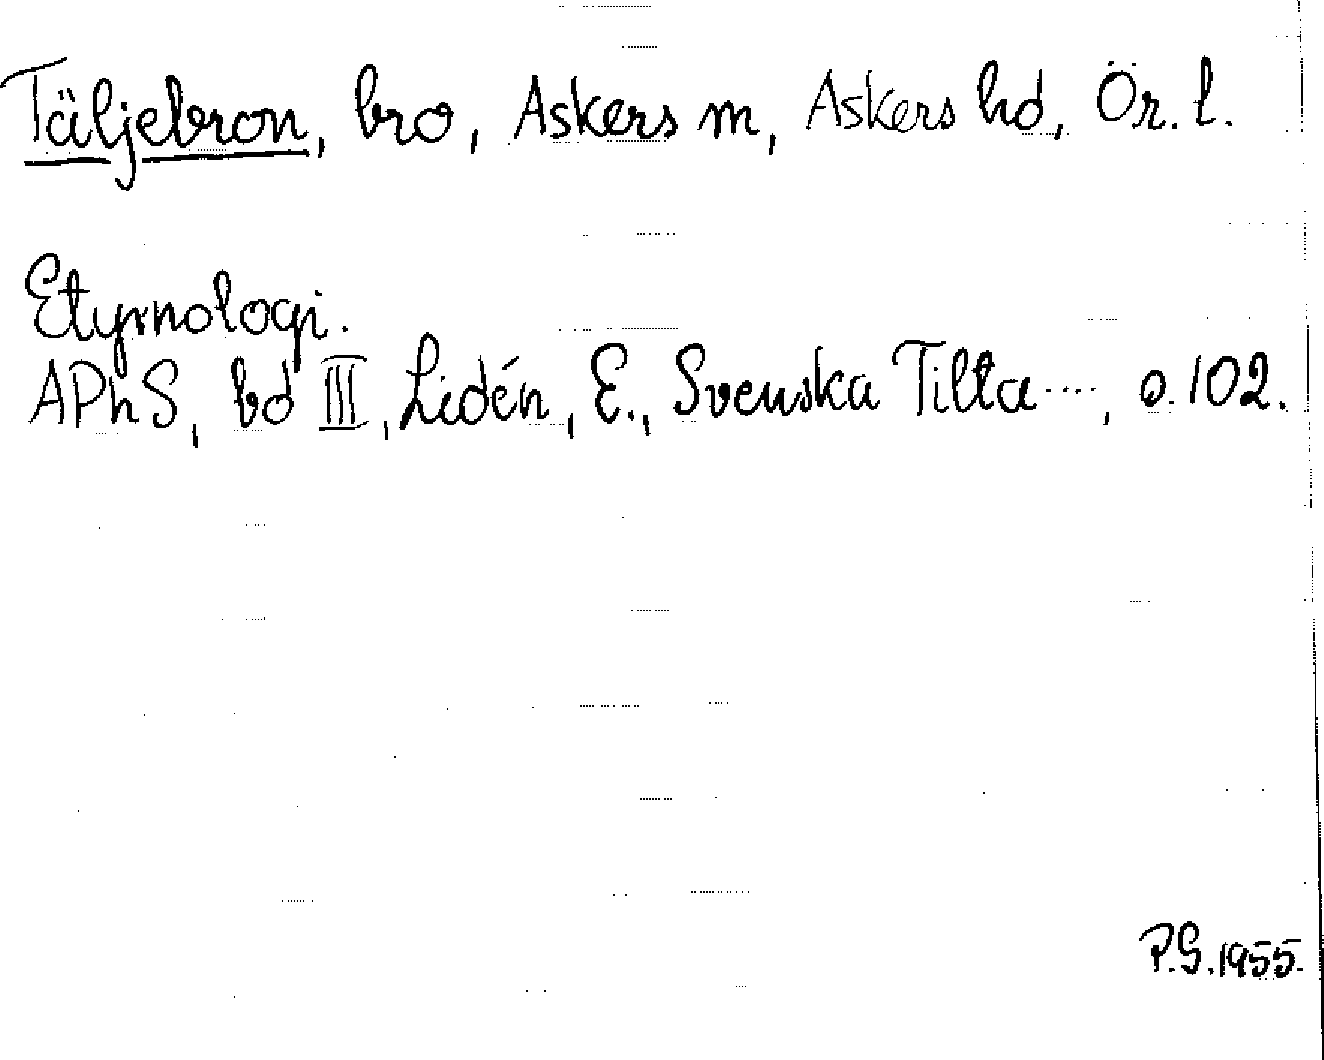 Täljebron, bro, Askers sn, Askers hd, Ör. l.
Etymologi.
APhS, bd III, Lidén, E., Svenska Tilta...., s. 102.
P.G. 1955.